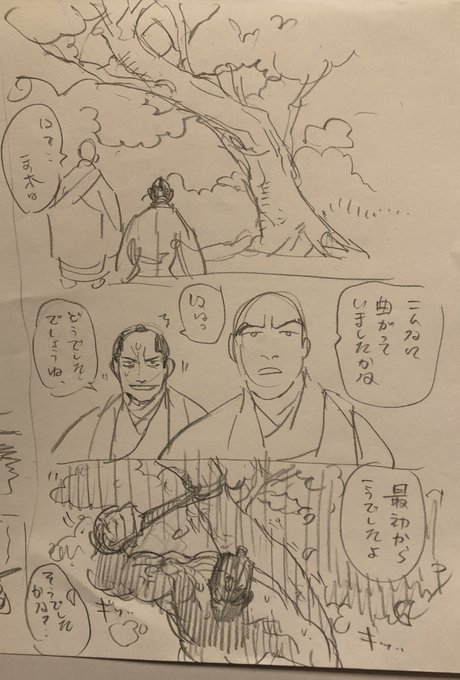 はて、
この木は
こんなに
曲がって
いましたかね
どうでした
でしょうね、
最初から
こうでしたよ
ギッ…
ギッ…
そうでした
かね?